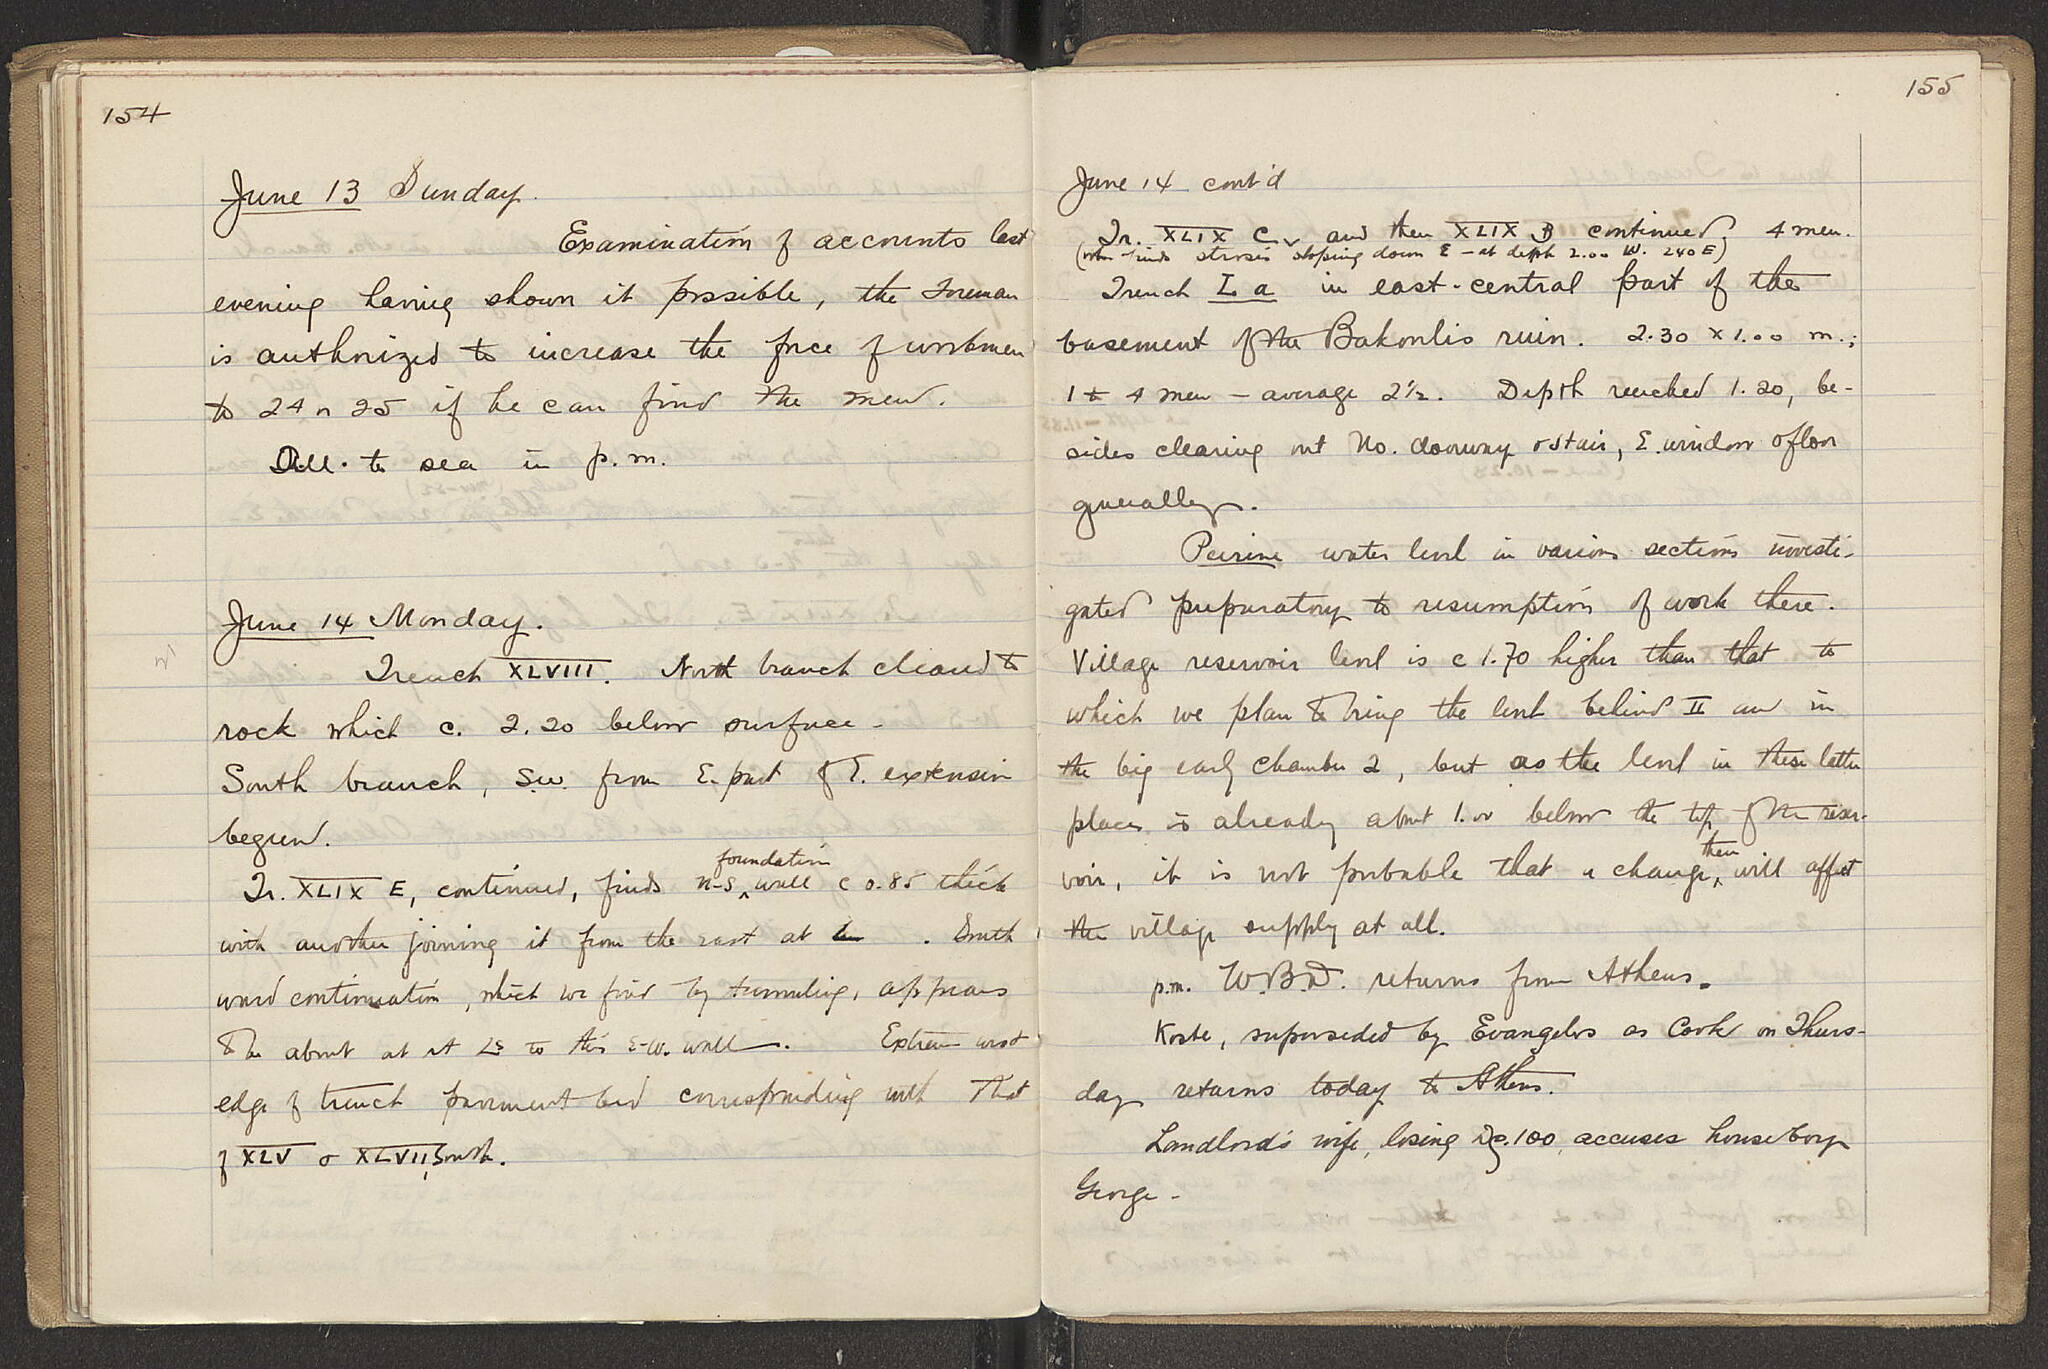 154
June 13 Sunday.
Examination of accounts last
evening having shown it possible, the Foreman
is authorized to increase the force of workmen
to 24 or 25 if he can find the men.
All to sea in p.m.
June 14 Monday.
Trench XLVIII. North branch cleared to
rock which c. 2.20 below surface.
South branch, S.W. from E. part of E. extension
begun.
Tr. XLIX E, continued, finds N-S foundation wall c 0.85 thick
with another joining it from the east at . South
ward continuation, which we find by tunneling, appears
to be about at rt Ls to this E-W. wall. Extreme west
edge of trench pavement bed corresponding with that
of XLV & XLVII, South.
155
June 14 cont'd
Tr. XLIX C, and then XLIX B continued, 4 men.
(when finds stroses sloping down E - at depth 2.00 W. 240 E)
Trench L a in east-central part of the
basement of the Bakoulis ruin. 2.30 x 1.00 m.;
1 to 4 men - average 2 1/2. Depth reached 1.20, be-
sides clearing out No. doorway & stair, E. window & floor
generally.
Peirine water level in various sections investi-
gated preparatory to resumption of work there.
Village reservoir level is c 1.70 higher than that to
which we plan to bring the level behind II and in
the big early chamber 2, but as the level in these latter
places is already about 1.00 below the top of the reser-
voir, it is not probable that a change, then will affect
the village supply at all.
p.m. W.B.D. returns from Athens.
Koste, superseded by Evangelos as Cook on Thurs-
day returns today to Athens.
Landlord's wife, losing Dr. 100, accuses houseboy
George.